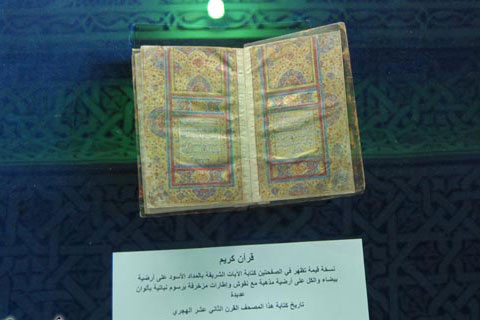 قرآن كريم
نسخة قيمة تظهر في الصفحتين كتابة الآيات الشريفة بالمداد الأسود على أرضية
بيضاء والكل على أرضية مذهبة مع نقوش وإطارات مزخرفة برسوم نباتية بألوان
عديدة
تاريخ كتابة هذا المصحف القرن الثاني عشر الهجري